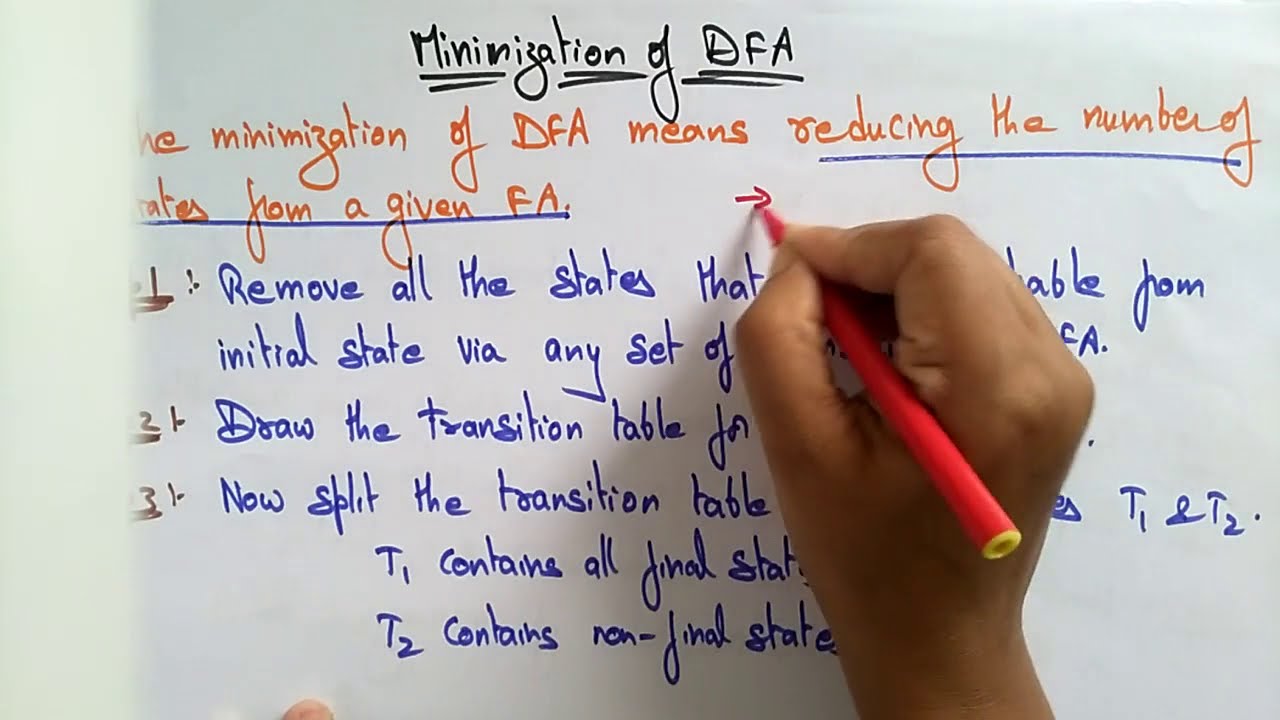 Minimization of DFA
he minimization of DFA means reducing the number of
tates from a given FA. →
1 :- Remove all the states that able from
initial state via any set of FA.
2 :- Draw the transition table for .
3 :- Now split the transition table es T1 & T2.
T1 contains all final stat
T2 contains non-final state